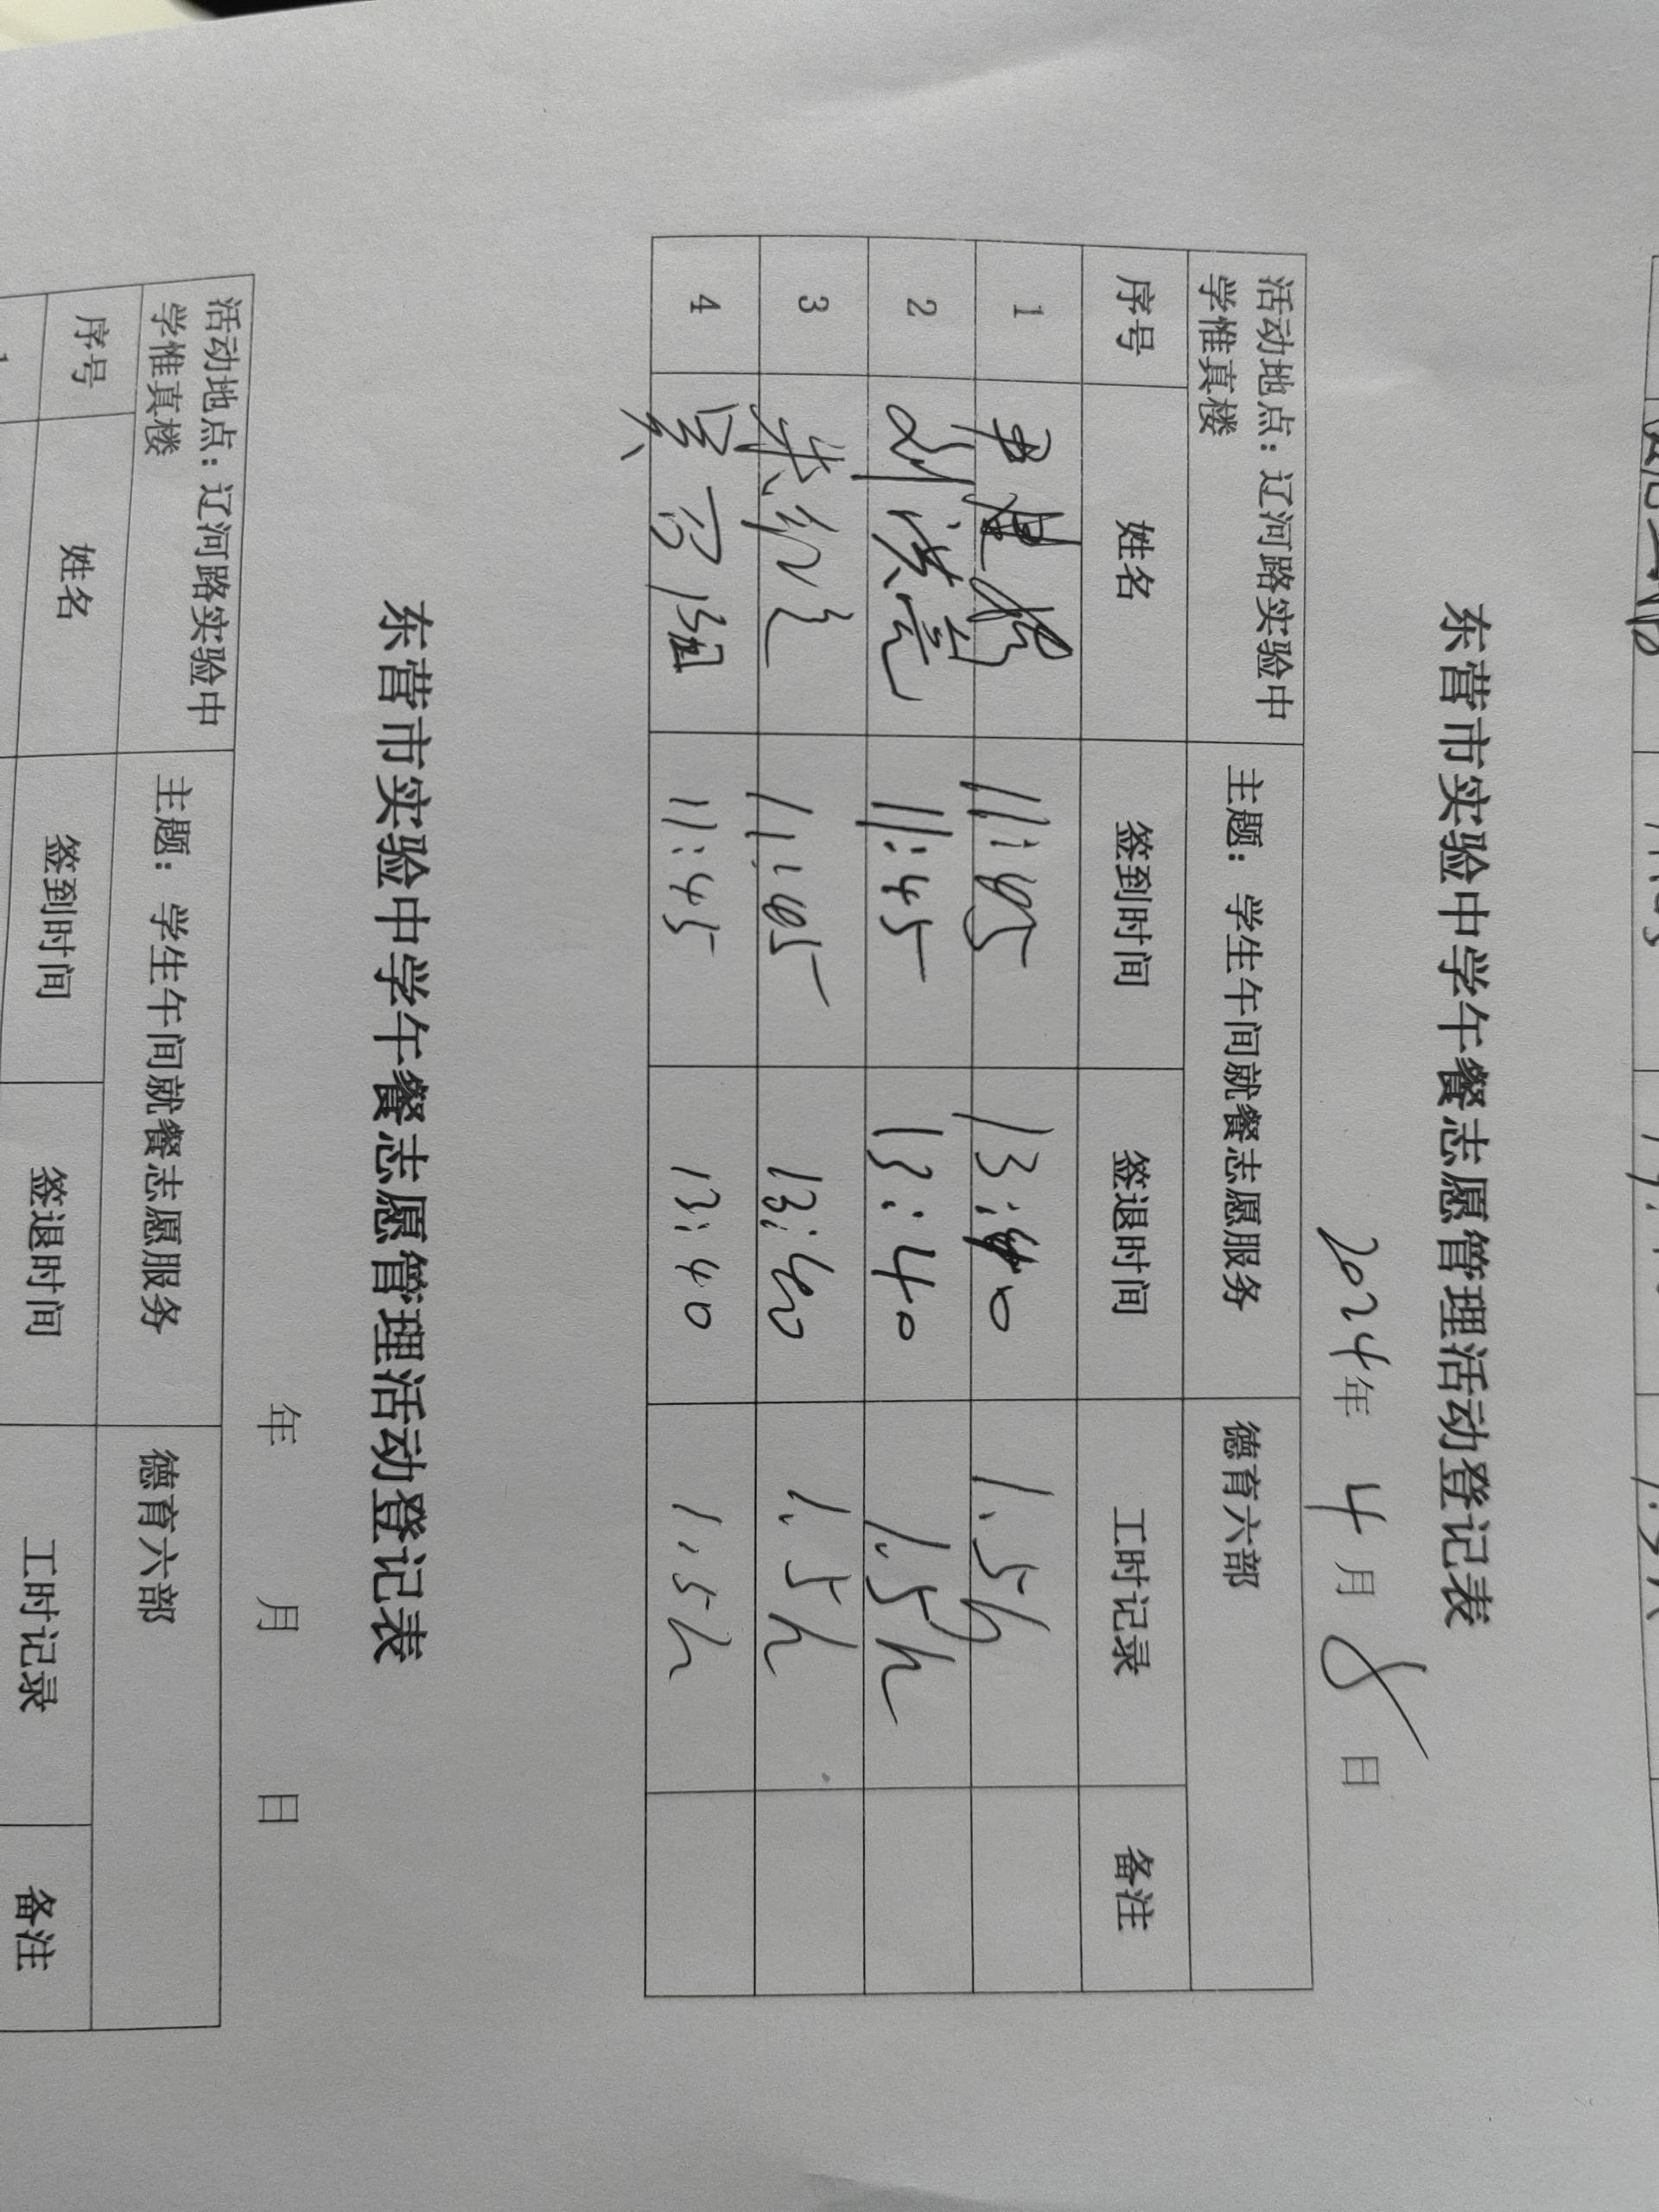 东营市实验中学午餐志愿管理活动登记表
2024年 4 月 8 日
活动地点：辽河路实验中 主题： 学生午间就餐志愿服务 德育六部
学惟真楼
序号 姓名 签到时间 签退时间 工时记录 备注
1 11:45 13:40 1.5h
2 刘洪亮 11:45 13:40 1.5h
3 11:45 13:40 1.5h
4 11:45 13:40 1.5h
东营市实验中学午餐志愿管理活动登记表
年 月 日
活动地点：辽河路实验中 主题： 学生午间就餐志愿服务 德育六部
学惟真楼
序号 姓名 签到时间 签退时间 工时记录 备注
1